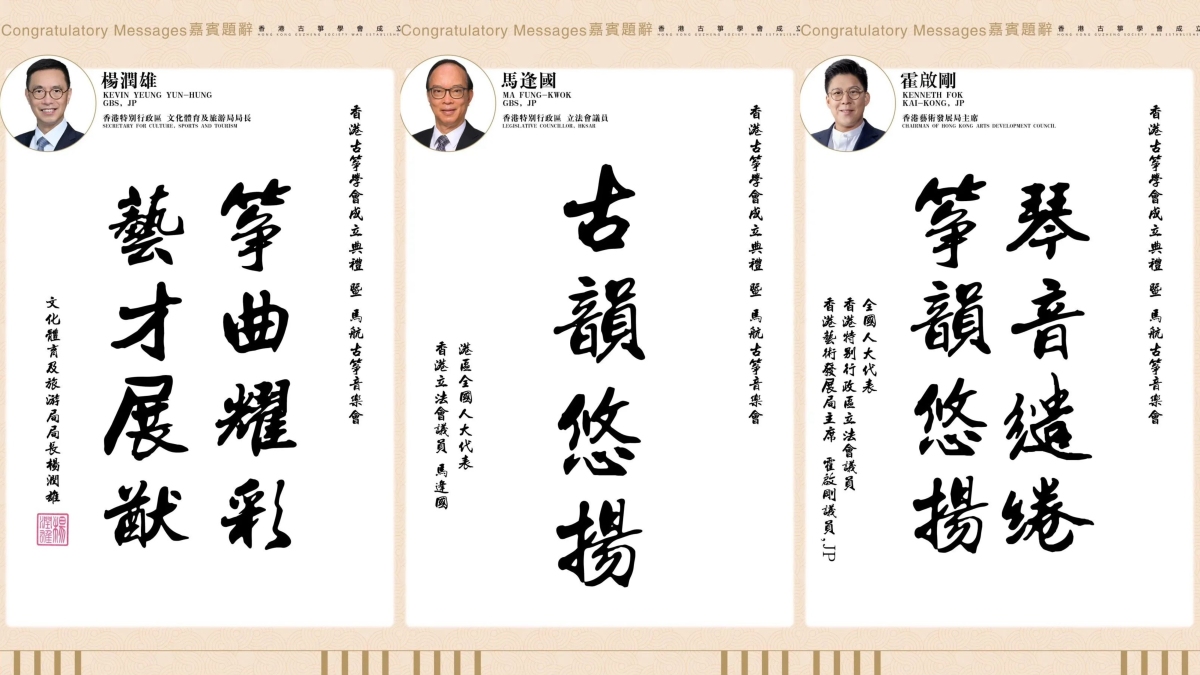 Congratulatory Messages嘉賓題辭 香港古箏學會成立
HONG KONG GUZHENG SOCIETY WAS ESTABLISHED
楊潤雄
KEVIN YEUNG YUN-HUNG
GBS, JP
香港特別行政區 文化體育及旅游局局長
SECRETARY FOR CULTURE, SPORTS AND TOURISM
香港古箏學會成立典禮 暨 馬航古箏音樂會
箏曲耀彩
藝才展猷
文化體育及旅游局局長楊潤雄
Congratulatory Messages嘉賓題辭 香港古箏學會成立
HONG KONG GUZHENG SOCIETY WAS ESTABLISHED
馬逢國
MA FUNG-KWOK
GBS, JP
香港特別行政區 立法會議員
LEGISLATIVE COUNCILLOR, HKSAR
香港古箏學會成立典禮 暨 馬航古箏音樂會
古韻悠揚
港區全國人大代表
香港立法會議員 馬逢國
Congratulatory Messages嘉賓題辭 香港古箏學會成立
HONG KONG GUZHENG SOCIETY WAS ESTABLISHED
霍啟剛
KENNETH FOK
KAI-KONG, JP
香港藝術發展局主席
CHAIRMAN OF HONG KONG ARTS DEVELOPMENT COUNCIL
香港古箏學會成立典禮 暨 馬航古箏音樂會
琴音繾綣
箏韻悠揚
全國人大代表
香港特別行政區立法會議員
香港藝術發展局主席 霍啟剛議員,JP